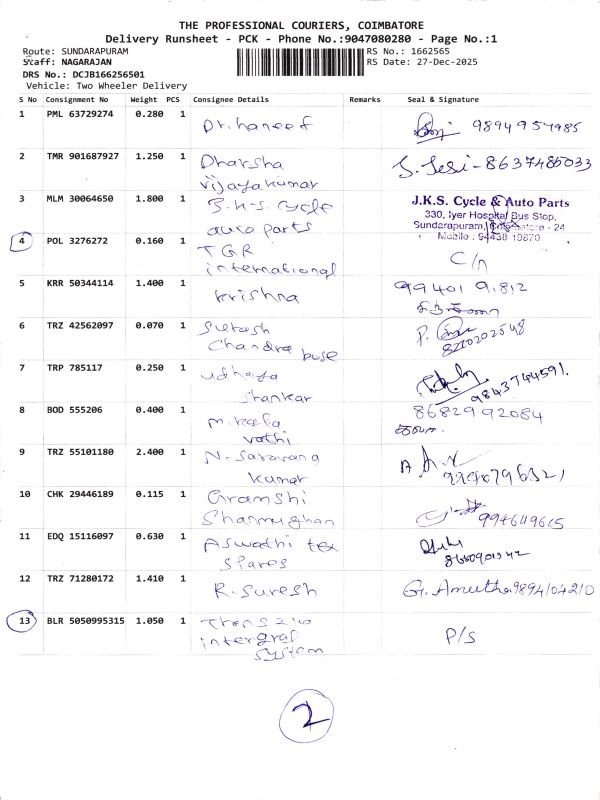 THE PROFESSIONAL COURIERS, COIMBATORE
Delivery Runsheet - PCK - Phone No.:9047080280 - Page No.:1
Route: SUNDARAPURAM RS No.: 1662565
Staff: NAGARAJAN RS Date: 27-Dec-2025
DRS No.: DCJB166256501
Vehicle: Two Wheeler Delivery
S No Consignment No Weight PCS Consignee Details Remarks Seal & Signature
1 PML 63729274 0.280 1 Dr. haneef 9894957985
2 TMR 901687927 1.250 1 Dharsha S. Sesi - 8637485033
vijayakumar
3 MLM 30064650 1.800 1 J.K.S. Cycle J.K.S. Cycle & Auto Parts
auto parts 330, Iyer Hospital Bus Stop,
Sundarapuram, Coimbatore - 24
Mobile : 94438 19870
4 POL 3276272 0.160 1 TGR C/n
international
5 KRR 50344114 1.400 1 Krishna 99401 91812
6 TRZ 42562097 0.070 1 Suresh P.
Chandra bose 8220202548
7 TRP 785117 0.250 1 udhaya
Shankar 9843744591.
8 BOD 555206 0.400 1 m. kala 8682992084
vathi கலா
9 TRZ 55101180 2.400 1 N. Saravana
kumar
10 CHK 29446189 0.115 1 Gramshi
Shanmughan 9946119615
11 EDQ 15116097 0.630 1 Aswathi tex
Spares
12 TRZ 71280172 1.410 1 R. Suresh G. Amutha 9894104210
13 BLR 5050995315 1.050 1 Trans zio P/S
intergral
System
2